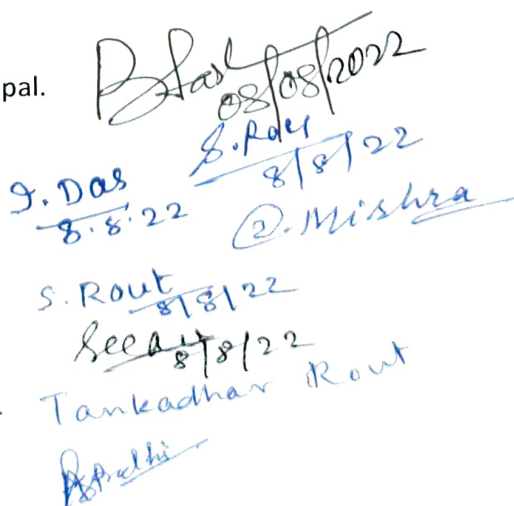 pal.
08/08/2022
S. Roy
8/8/22
I. Das
8.8.22
Mishra
S. Rout
8/8/22
8/8/22
Tankadhar Rout